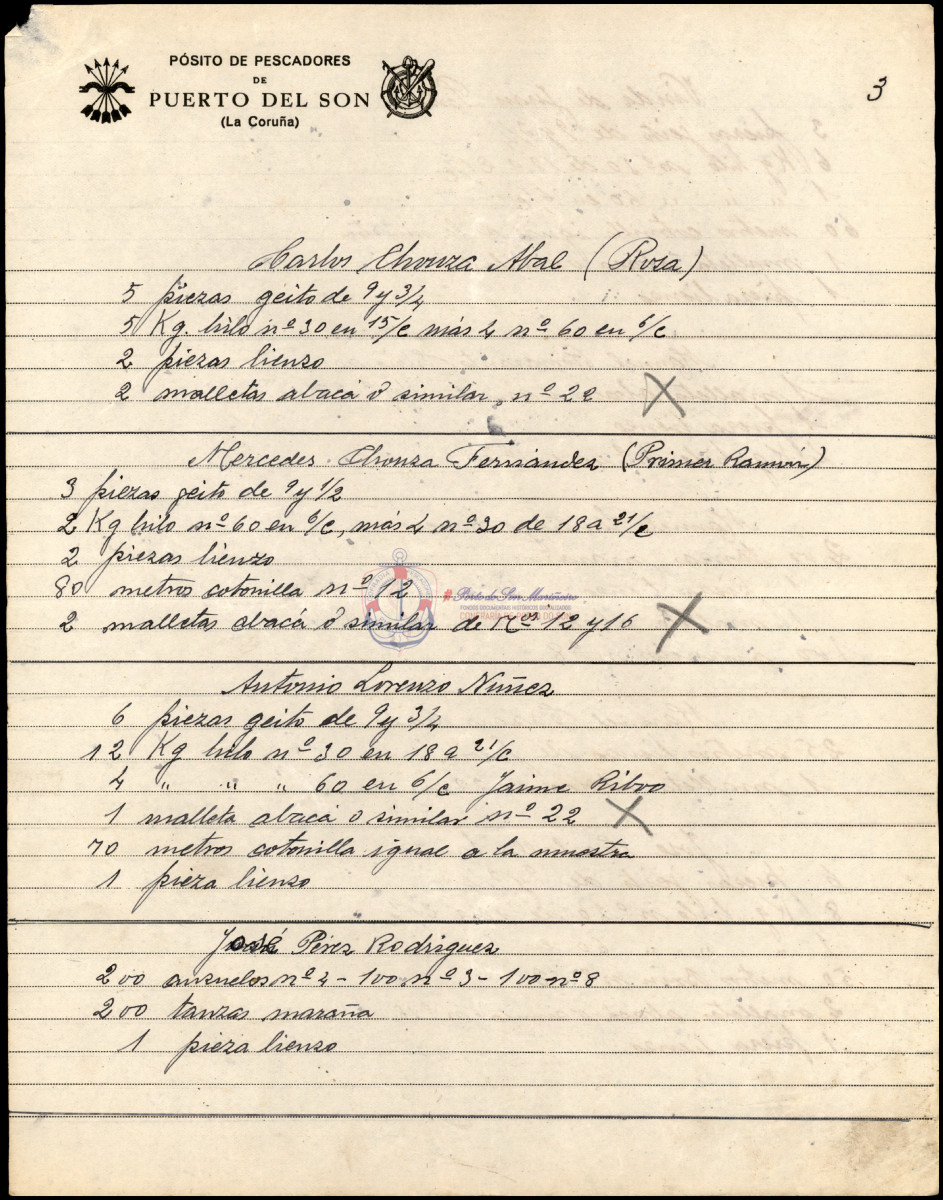 PÓSITO DE PESCADORES
DE
PUERTO DEL SON
(La Coruña)
3
Carlos Chouza Abal (Rosa)
5 piezas geito de 9 y 3/4
5 Kg. hilo nº 30 en 15/c más 4 nº 60 en 6/c
2 piezas lienzo
2 malletas abacá ó similar, nº 22 X
Mercedes Chouza Fernández (Primer Ramón)
3 piezas geito de 9 y 1/2
2 Kg hilo nº 60 en 6/c, más 4 nº 30 de 18 a 21/c
2 piezas lienzo
80 metros cotonilla nº 12
Porto do Son Mariñeiro
FONDOS DOCUMENTAIS HISTÓRICOS DIXITALIZADOS
2 malletas abacá ó similar de Nos 12 y 16 X
Antonio Lorenzo Núñez
6 piezas geito de 9 y 3/4
12 Kg hilo nº 30 en 18 a 21/c
4 " " " 60 en 6/c Jaime Ribó
1 malleta abacá ó similar nº 22 X
70 metros cotonilla igual a la muestra
1 pieza lienzo
José Pérez Rodríguez
200 anzuelos nº 4 - 100 nº 3 - 100 nº 8
200 tanzas maraña
1 pieza lienzo